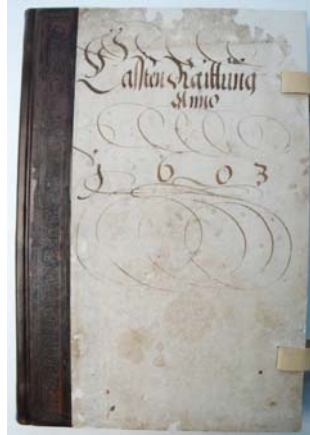 Cassten Raittung
Anno
1603